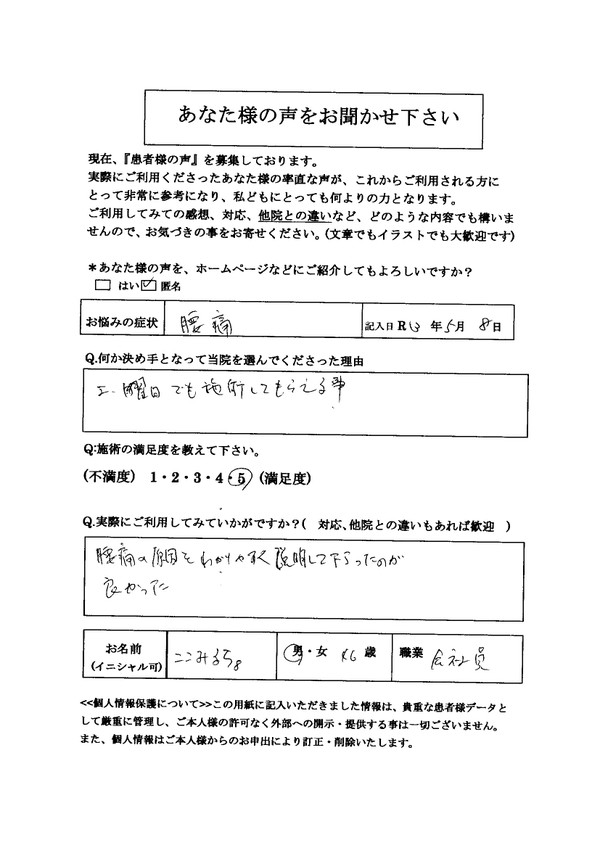 あなた様の声をお聞かせ下さい
現在、『患者様の声』を募集しております。
実際にご利用くださったあなた様の率直な声が、これからご利用される方に
とって非常に参考になり、私どもにとっても何よりの力となります。
ご利用してみての感想、対応、他院との違いなど、どのような内容でも構いま
せんので、お気づきの事をお寄せください。(文章でもイラストでも大歓迎です)
*あなた様の声を、ホームページなどにご紹介してもよろしいですか?
はい 匿名
お悩みの症状 腰痛 記入日 R 年 5月 8日
Q.何か決め手となって当院を選んでくださった理由
曜日でも施術してもらえる事
Q:施術の満足度を教えて下さい。
(不満度) 1・2・3・4・5 (満足度)
Q.実際にご利用してみていかがですか?( 対応、他院との違いもあれば歓迎 )
腰痛の原因をわかりやすく説明して下さったのが
良かった
お名前
(イニシャル可) 男・女 歳 職業 会社員
<<個人情報保護について>>この用紙に記入いただきました情報は、貴重な患者様データと
して厳重に管理し、ご本人様の許可なく外部への開示・提供する事は一切ございません。
また、個人情報はご本人様からのお申出により訂正・削除いたします。